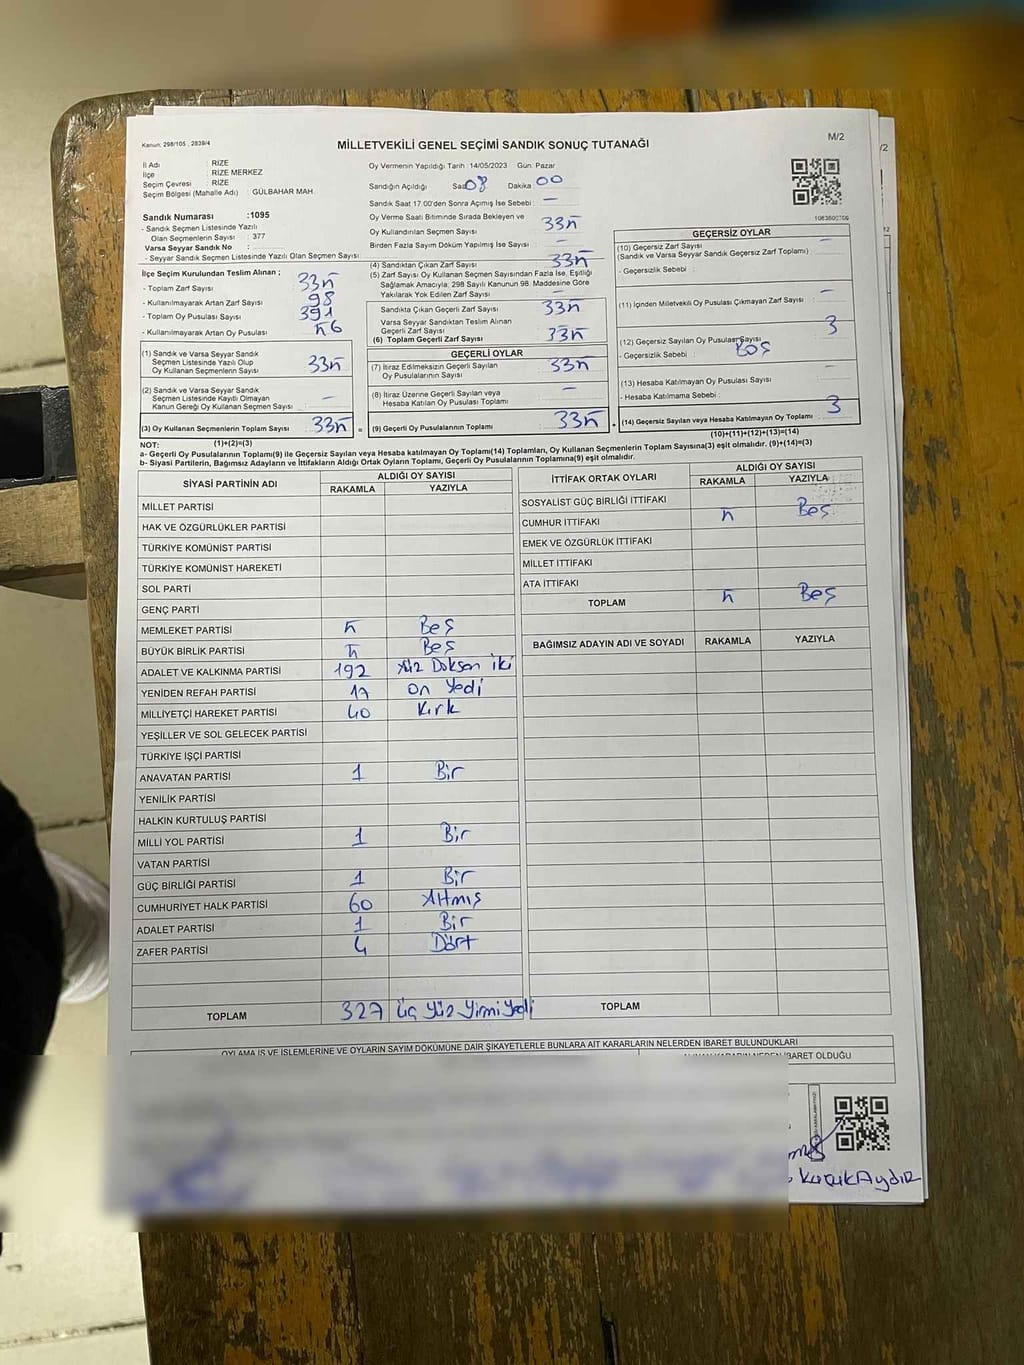 Kanun: 298/105 , 2839/4
MİLLETVEKİLİ GENEL SEÇİMİ SANDIK SONUÇ TUTANAĞI
M/2
İl Adı : RİZE
İlçe : RİZE MERKEZ
Seçim Çevresi : RİZE
Seçim Bölgesi (Mahalle Adı) : GÜLBAHAR MAH.
Sandık Numarası :1095
- Sandık Seçmen Listesinde Yazılı
Olan Seçmenlerin Sayısı : 377
Varsa Seyyar Sandık No :
- Seyyar Sandık Seçmen Listesinde Yazılı Olan Seçmen Sayısı:
Oy Vermenin Yapıldığı Tarih :14/05/2023 Gün: Pazar
Sandığın Açıldığı Saat 08 Dakika 00
Sandık Saat 17.00'den Sonra Açılmış İse Sebebi : —
Oy Verme Saati Bitiminde Sırada Bekleyen ve
Oy Kullandırılan Seçmen Sayısı : 335
Birden Fazla Sayım Döküm Yapılmış İse Sayısı : —
İlçe Seçim Kurulundan Teslim Alınan ;
- Toplam Zarf Sayısı 335
- Kullanılmayarak Artan Zarf Sayısı 98
- Toplam Oy Pusulası Sayısı 391
- Kullanılmayarak Artan Oy Pusulası 56
(1) Sandık ve Varsa Seyyar Sandık
Seçmen Listesinde Yazılı Olup
Oy Kullanan Seçmenlerin Sayısı 335
(2) Sandık ve Varsa Seyyar Sandık
Seçmen Listesinde Kayıtlı Olmayan
Kanun Gereği Oy Kullanan Seçmen Sayısı —
(3) Oy Kullanan Seçmenlerin Toplam Sayısı 335
(1)+(2)=(3)
(4) Sandıktan Çıkan Zarf Sayısı 335
(5) Zarf Sayısı Oy Kullanan Seçmen Sayısından Fazla İse, Eşitliği
Sağlamak Amacıyla, 298 Sayılı Kanunun 98. Maddesine Göre
Yakılarak Yok Edilen Zarf Sayısı —
Sandıkta Çıkan Geçerli Zarf Sayısı 335
Varsa Seyyar Sandıktan Teslim Alınan
Geçerli Zarf Sayısı
(6) Toplam Geçerli Zarf Sayısı 335
GEÇERLİ OYLAR
(7) İtiraz Edilmeksizin Geçerli Sayılan
Oy Pusulalarının Sayısı 335
(8) İtiraz Üzerine Geçerli Sayılan veya
Hesaba Katılan Oy Pusulası Toplamı —
= (9) Geçerli Oy Pusulalarının Toplamı 335
GEÇERSİZ OYLAR
(10) Geçersiz Zarf Sayısı —
(Sandık ve Varsa Seyyar Sandık Geçersiz Zarf Toplamı)
- Geçersizlik Sebebi :
(11) İçinden Milletvekili Oy Pusulası Çıkmayan Zarf Sayısı —
(12) Geçersiz Sayılan Oy Pusulası Sayısı 3
- Geçersizlik Sebebi : BOŞ
(13) Hesaba Katılmayan Oy Pusulası Sayısı —
- Hesaba Katılmama Sebebi :
+ (14) Geçersiz Sayılan veya Hesaba Katılmayan Oy Toplamı 3
(10)+(11)+(12)+(13)=(14)
NOT:
a- Geçerli Oy Pusulalarının Toplamı(9) ile Geçersiz Sayılan veya Hesaba katılmayan Oy Toplamı(14) Toplamları, Oy Kullanan Seçmenlerin Toplam Sayısına(3) eşit olmalıdır. (9)+(14)=(3)
b- Siyasi Partilerin, Bağımsız Adayların ve İttifakların Aldığı Ortak Oyların Toplamı, Geçerli Oy Pusulalarının Toplamına(9) eşit olmalıdır.
SİYASİ PARTİNİN ADI ALDIĞI OY SAYISI
RAKAMLA YAZIYLA
MİLLET PARTİSİ
HAK VE ÖZGÜRLÜKLER PARTİSİ
TÜRKİYE KOMÜNİST PARTİSİ
TÜRKİYE KOMÜNİST HAREKETİ
SOL PARTİ
GENÇ PARTİ
MEMLEKET PARTİSİ 5 Beş
BÜYÜK BİRLİK PARTİSİ 5 Beş
ADALET VE KALKINMA PARTİSİ 192 Yüz Doksan iki
YENİDEN REFAH PARTİSİ 17 on Yedi
MİLLİYETÇİ HAREKET PARTİSİ 40 Kırk
YEŞİLLER VE SOL GELECEK PARTİSİ
TÜRKİYE İŞÇİ PARTİSİ
ANAVATAN PARTİSİ 1 Bir
YENİLİK PARTİSİ
HALKIN KURTULUŞ PARTİSİ
MİLLİ YOL PARTİSİ 1 Bir
VATAN PARTİSİ
GÜÇ BİRLİĞİ PARTİSİ 1 Bir
CUMHURİYET HALK PARTİSİ 60 Altmış
ADALET PARTİSİ 1 Bir
ZAFER PARTİSİ 4 Dört
TOPLAM 327 üç Yüz Yirmi Yedi
İTTİFAK ORTAK OYLARI ALDIĞI OY SAYISI
RAKAMLA YAZIYLA
SOSYALİST GÜÇ BİRLİĞİ İTTİFAKI
CUMHUR İTTİFAKI 5 Beş
EMEK VE ÖZGÜRLÜK İTTİFAKI
MİLLET İTTİFAKI
ATA İTTİFAKI
TOPLAM 5 Beş
BAĞIMSIZ ADAYIN ADI VE SOYADI RAKAMLA YAZIYLA
TOPLAM
OYLAMA İŞ VE İŞLEMLERİNE VE OYLARIN SAYIM DÖKÜMÜNE DAİR ŞİKAYETLERLE BUNLARA AİT KARARLARIN NELERDEN İBARET BULUNDUKLARI
İBARET OLDUĞU